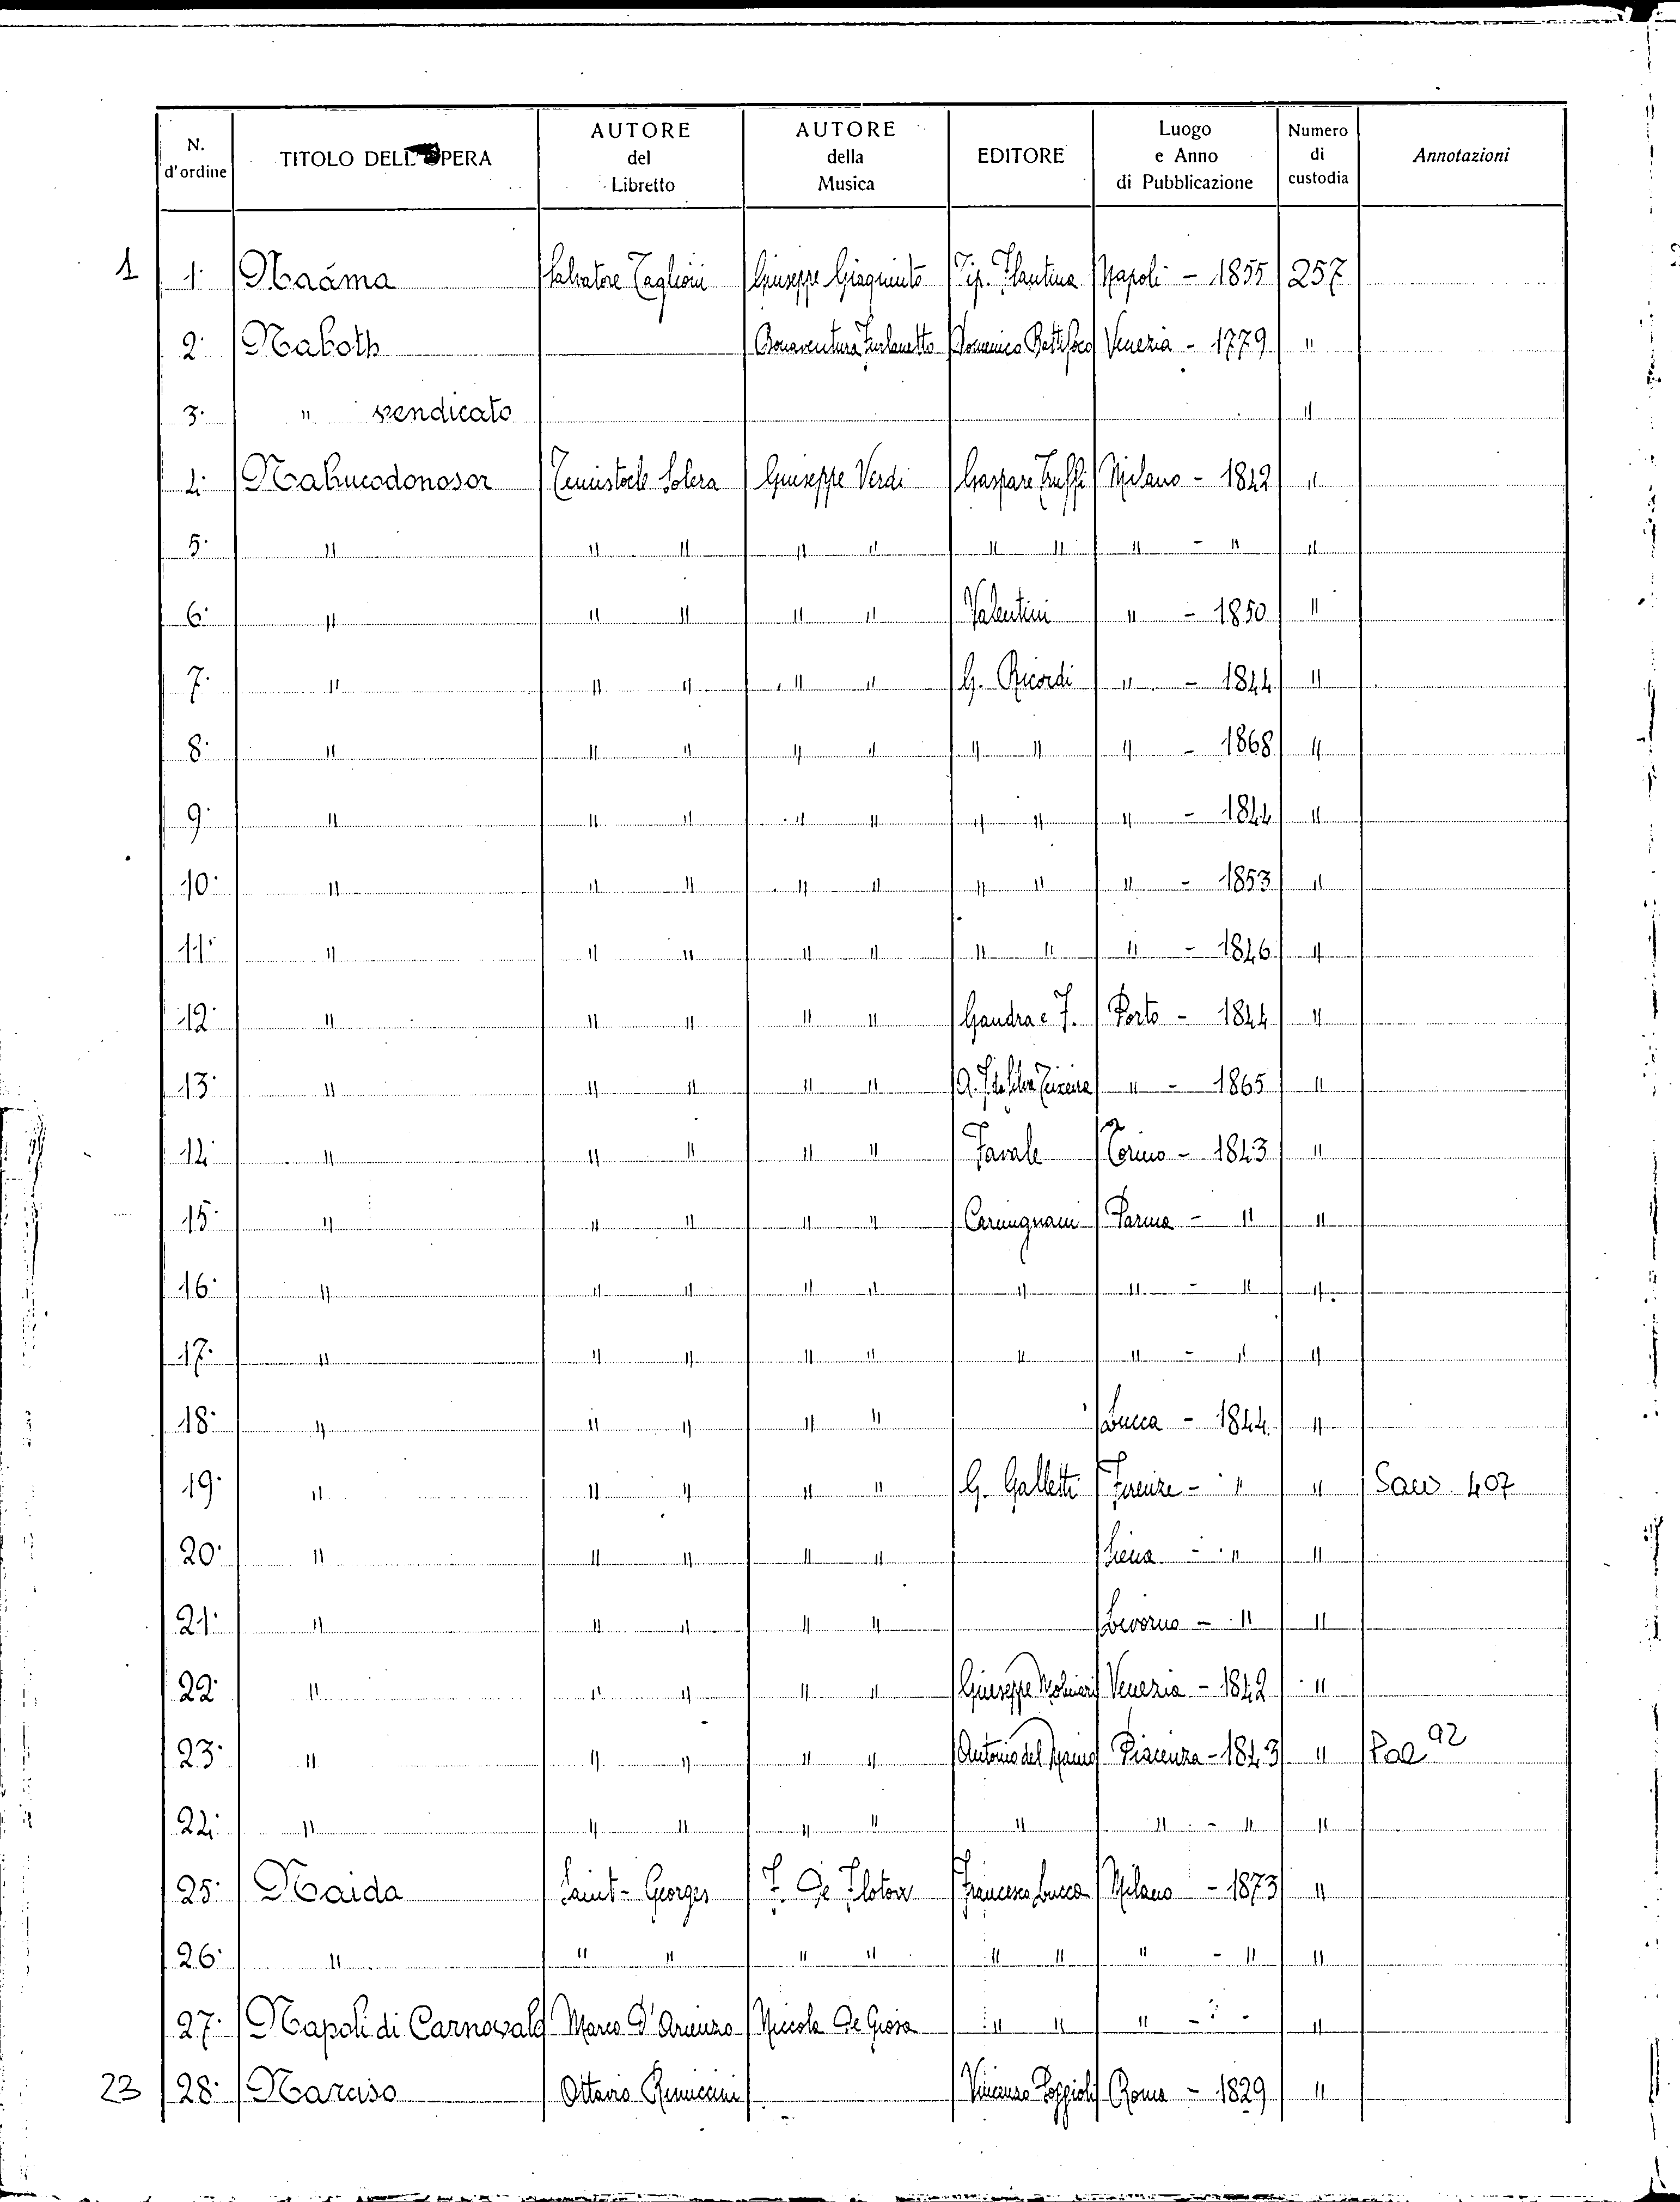 N. d'ordine TITOLO DELL'OPERA AUTORE del Libretto AUTORE della Musica EDITORE Luogo e Anno di Pubblicazione Numero di custodia Annotazioni
1 1. Naáma Salvatore Taglioni Giuseppe Giaquinto Tip. Plautina Napoli - 1855 257
2. Naboth Bonaventura Furlanetto Domenico Battifoco Venezia - 1779 "
3. " vendicato "
4. Nabucodonosor Temistocle Solera Giuseppe Verdi Gaspare Truffi Milano - 1842 "
5. " " " " " " " " - " "
6. " " " " " Valentini " - 1850 "
7. " " " " " G. Ricordi " - 1844 "
8. " " " " " " " " - 1868 "
9. " " " " " " " " - 1844 "
10. " " " " " " " " - 1853 "
11. " " " " " " " " - 1846 "
12. " " " " " Gandra e F. Porto - 1844 "
13. " " " " " A. F. da Silva Teixeira " - 1865 "
14. " " " " " Favale Torino - 1843 "
15. " " " " " Carmignani Parma - " "
16. " " " " " " " - " "
17. " " " " " " " - " "
18. " " " " " Lucca - 1844 "
19. " " " " " G. Galletti Firenze - " " Saw 407
20. " " " " " Siena - " "
21. " " " " " Livorno - " "
22. " " " " " Giuseppe Molinari Venezia - 1842 "
23. " " " " " Antonio del Maino Piacenza - 1843 " Pal 92
24. " " " " " " " - " "
25. Naida Saint-Georges F. De Flotow Francesco Lucca Milano - 1873 "
26. " " " " " " " " - " "
27. Napoli di Carnovale Marco D'Arienzo Niccola De Giosa " " " - "
23 28. Narciso Ottavio Rinuccini Vincenzo Poggioli Roma - 1829 "